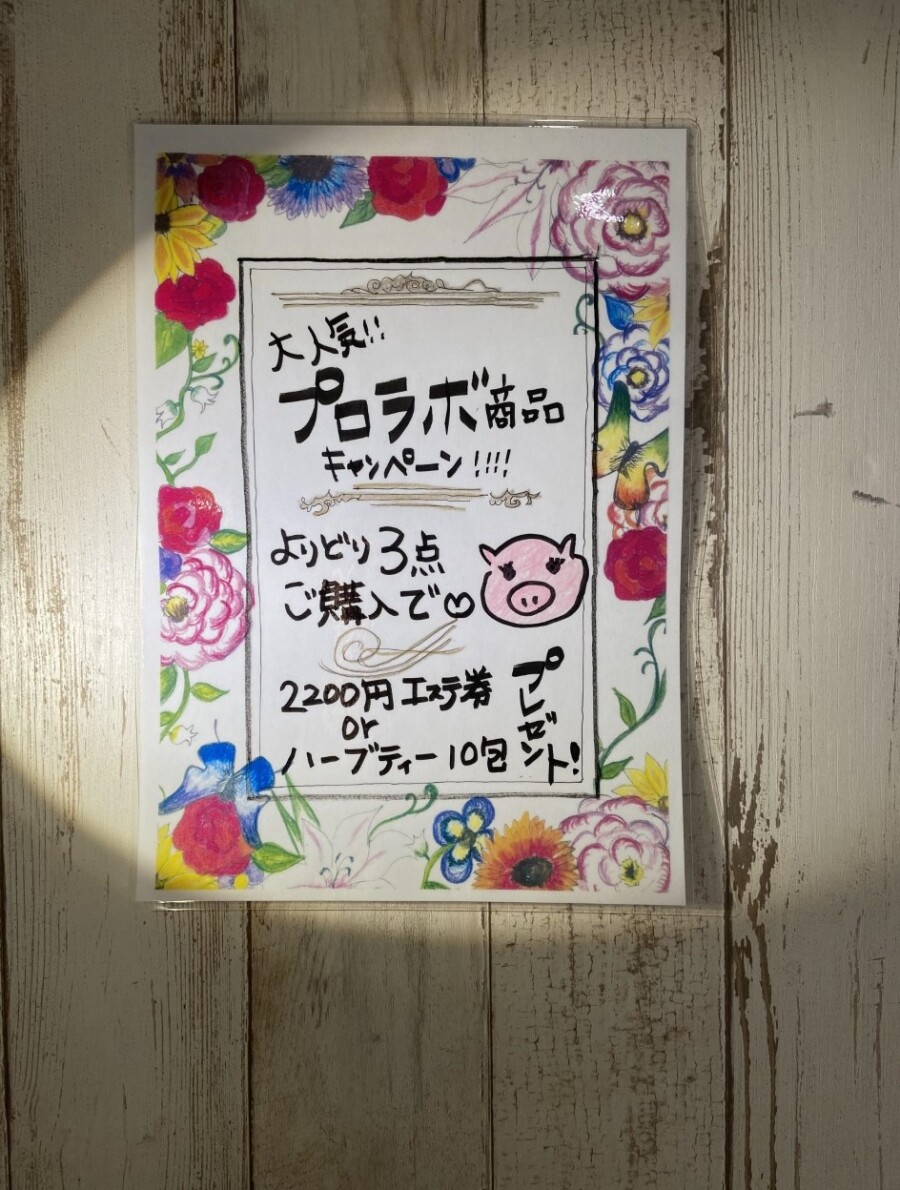 大人気!!
プロラボ商品
キャンペーン!!!!
よりどり3点
ご購入で
2200円エステ券
or
ハーブティー10包
プレゼント!